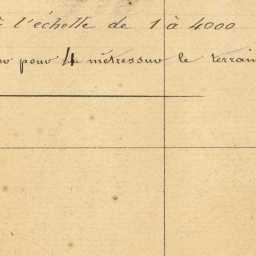 l'échelle de 1 à 4000
pour 4 mètres sur le terrain